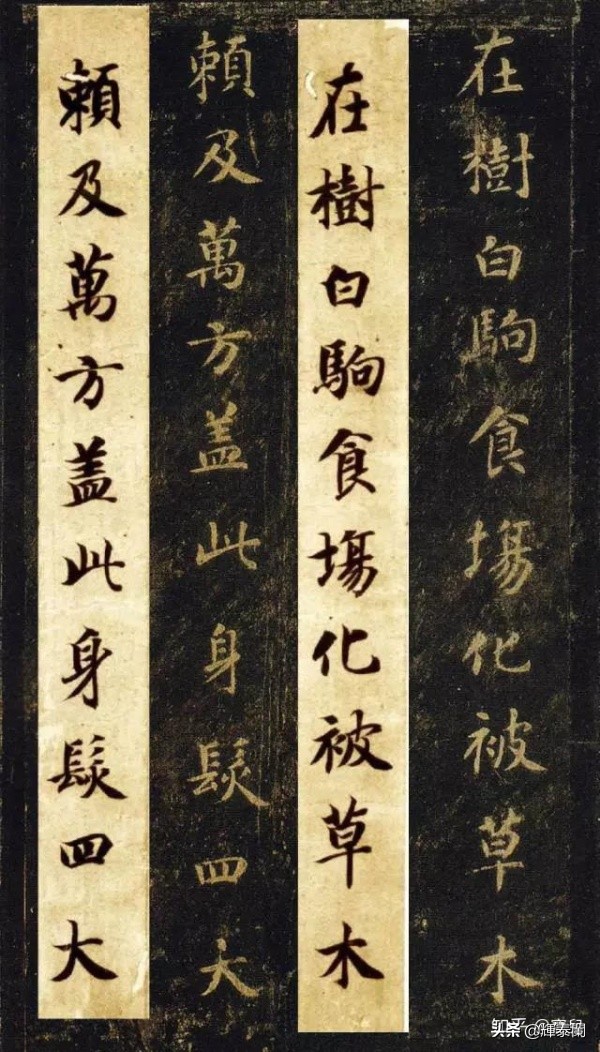 在樹白駒食塲化被草木
在樹白駒食塲化被草木
賴及萬方盖此身髮四大
賴及萬方盖此身髮四大
知乎
头条 @輝泰